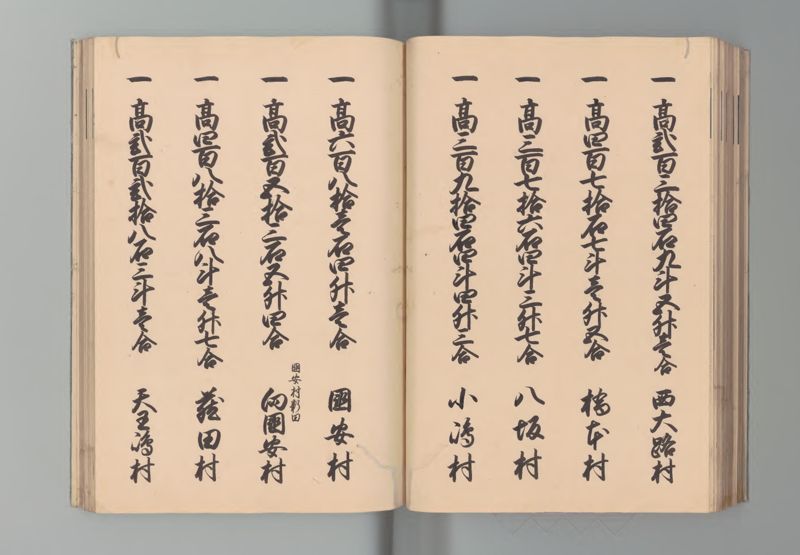 一 高貳百三拾四石九斗五升壱合 西大路村
一 高四百七拾石七斗壱升五合 橋本村
一 高三百七拾六石四斗三升七合 八坂村
一 高三百九拾四石四斗四升三合 小嶋村
一 高六百八拾壱石四升壱合 國安村
國安村新田
一 高貳百五拾二石五升四合 向國安村
一 高四百八拾二石八斗壱升七合 蔵田村
一 高貳百貳拾八石三斗壱合 天王嶋村